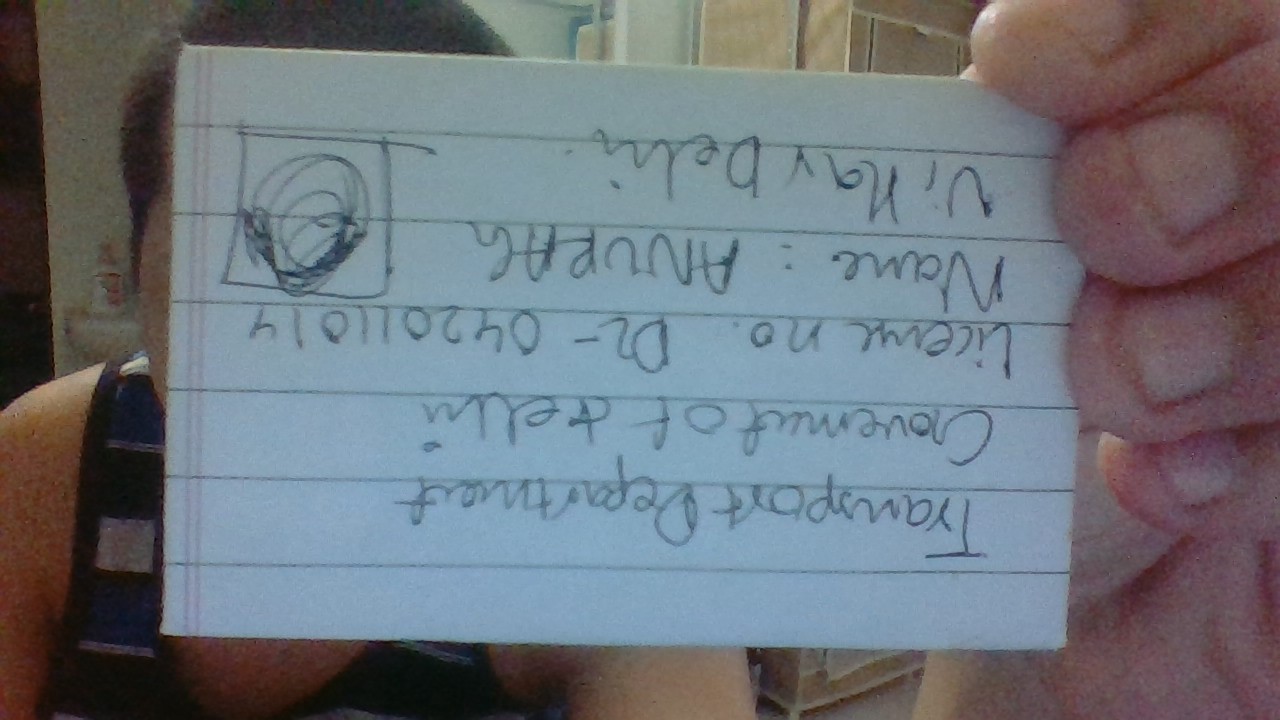 Transport Department
Goverment of delhi
License no. DL - 042011014
Name : ANURAG
Vihar Delhi.